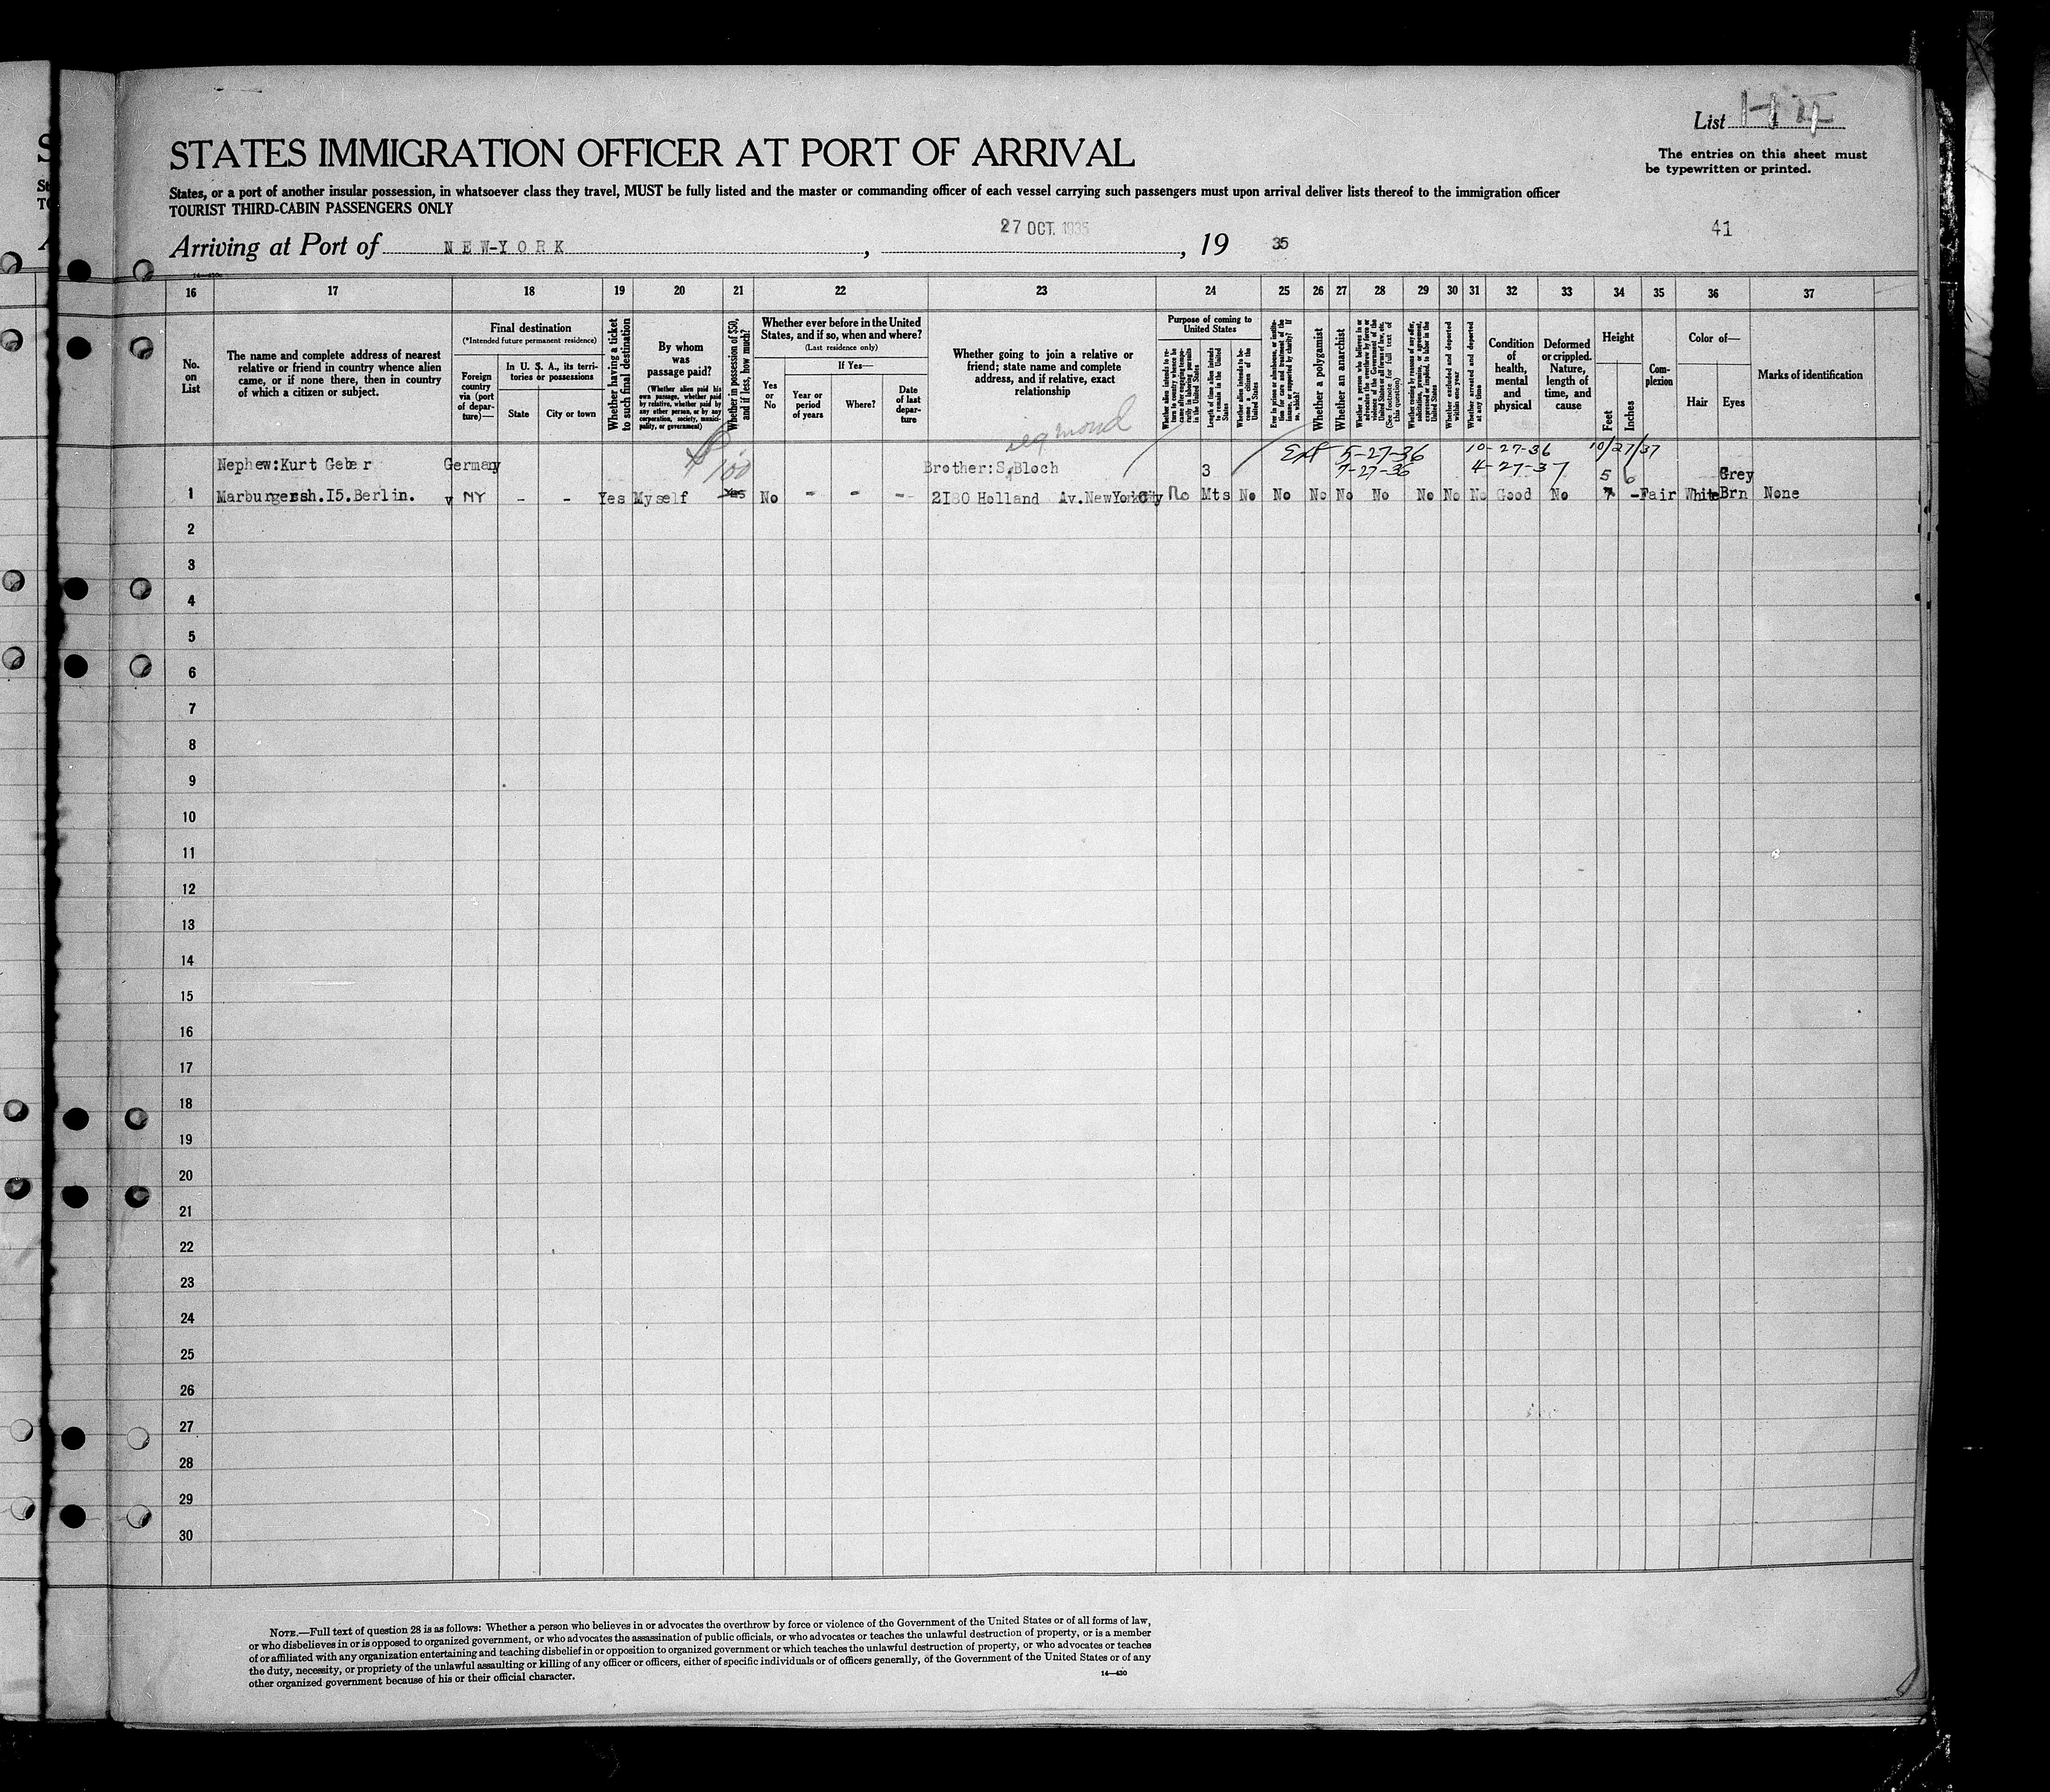 List
The entries on this sheet must
be typewritten or printed.
STATES IMMIGRATION OFFICER AT PORT OF ARRIVAL
States, or a port of another insular possession, in whatsoever class they travel, MUST be fully listed and the master or commanding officer of each vessel carrying such passengers must upon arrival deliver lists thereof to the immigration officer
TOURIST THIRD-CABIN PASSENGERS ONLY
27 OCT. 1935
41
Arriving at Port of NEW-YORK, , 19 35
16 17 18 19 20 21 22 23 24 25 26 27 28 29 30 31 32 33 34 35 36 37
No. on List
The name and complete address of nearest
relative or friend in country whence alien
came, or if none there, then in country
of which a citizen or subject.
Final destination
(*Intended future permanent residence)
Foreign country via (port of departure)—
In U. S. A., its territories or possessions
State
City or town
Whether having a ticket to such final destination
By whom was passage paid?
(Whether alien paid his own passage, whether paid by relative, whether paid by any other person, or by any corporation, society, municipality, or government)
Whether in possession of $50, and if less, how much?
Whether ever before in the United States, and if so, when and where?
(Last residence only)
Yes or No
If Yes—
Year or period of years
Where?
Date of last departure
Whether going to join a relative or
friend; state name and complete
address, and if relative, exact
relationship
Purpose of coming to United States
Length of time alien intends to remain in the United States
Whether alien intends to become a citizen of the United States
Whether a polygamist
Whether an anarchist
Whether excluded and deported within one year
Whether arrested and deported at any time
Condition of health, mental and physical
Deformed or crippled. Nature, length of time, and cause
Height
Feet
Inches
Complexion
Color of—
Hair
Eyes
Marks of identification
5-27-36 10-27-36 10/27/37
7-27-36 4-27-37
Nephew:Kurt Geber Germany $100 Brother:S.Bloch 3 5 6 Grey
1 Marburgerssh.I5.Berlin. v NY - - Yes Myself Yes No - - - 2I80 Holland Av.NewYork City No Mts No No No No No No No No Good No - Fair White Brn None
2
3
4
5
6
7
8
9
10
11
12
13
14
15
16
17
18
19
20
21
22
23
24
25
26
27
28
29
30
NOTE.—Full text of question 28 is as follows: Whether a person who believes in or advocates the overthrow by force or violence of the Government of the United States or of all forms of law,
or who disbelieves in or is opposed to organized government, or who advocates the assassination of public officials, or who advocates or teaches the unlawful destruction of property, or is a member
of or affiliated with any organization entertaining and teaching disbelief in or opposition to organized government or which teaches the unlawful destruction of property, or who advocates or teaches
the duty, necessity, or propriety of the unlawful assaulting or killing of any officer or officers, either of specific individuals or of officers generally, of the Government of the United States or of any
other organized government because of his or their official character.
14—430